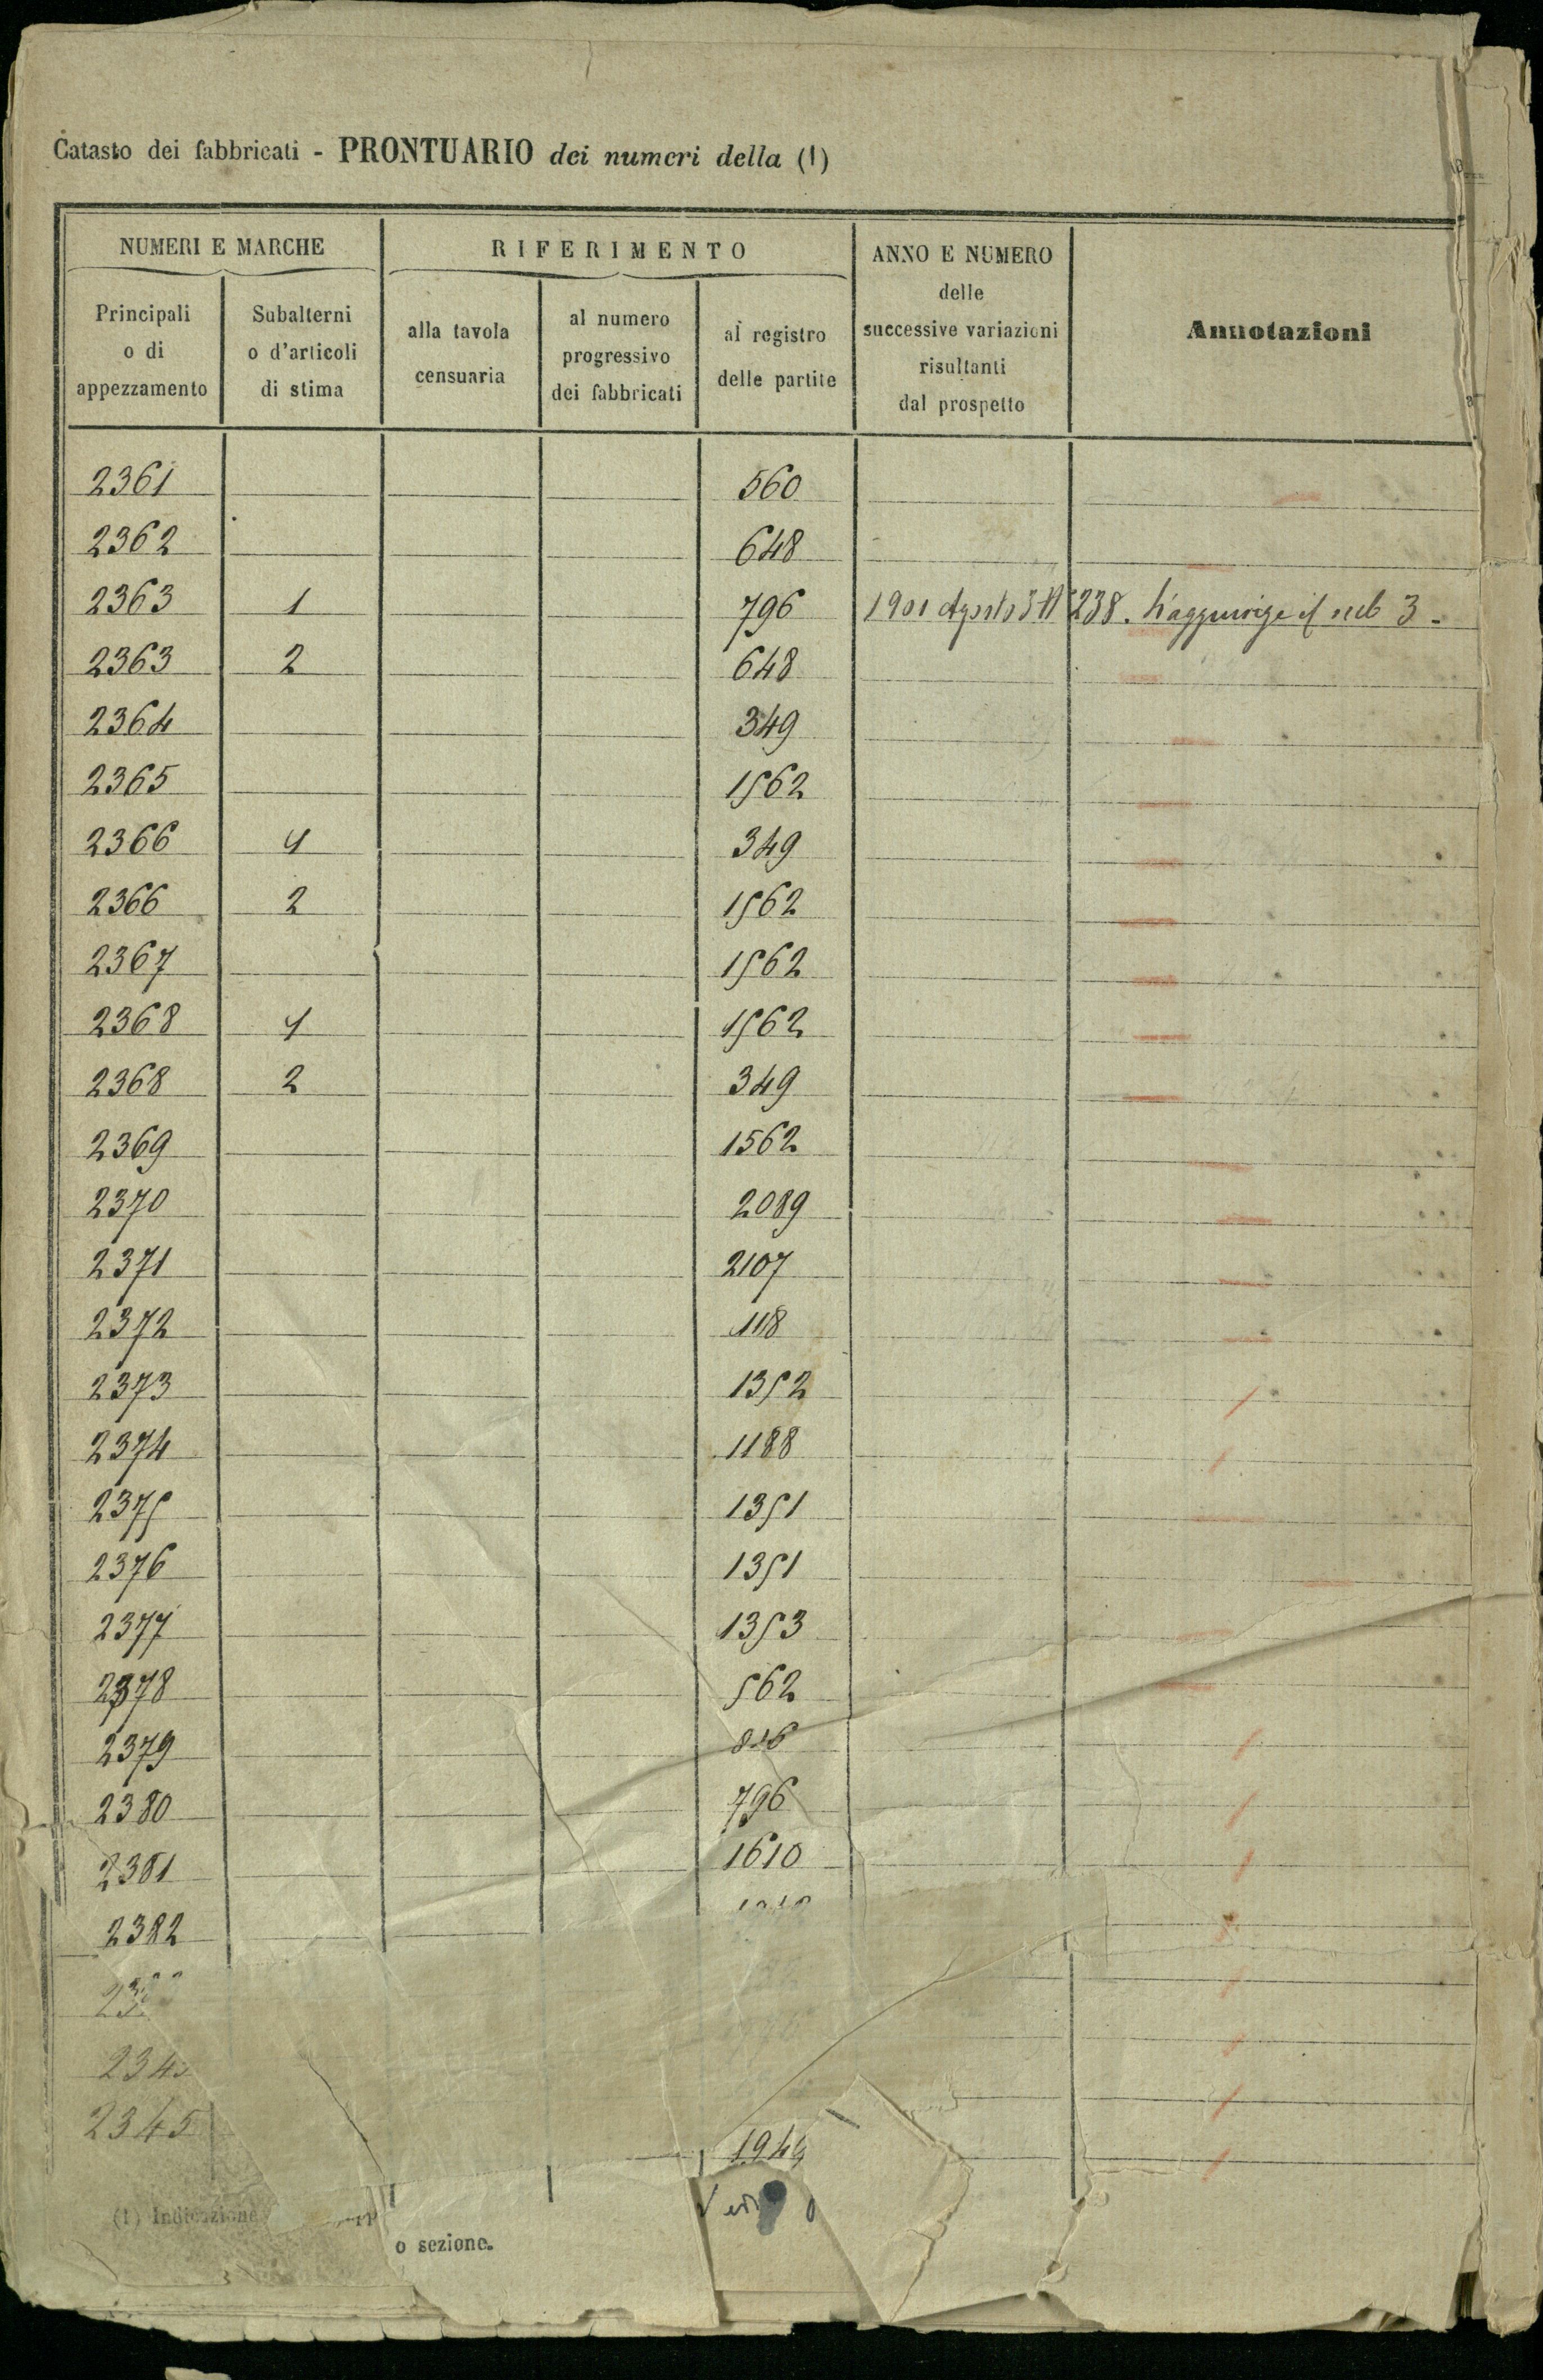 Catasto dei fabbricati - PRONTUARIO dei numeri della (1)
NUMERI E MARCHE
RIFERIMENTO
ANNO E NUMERO
delle
successive variazioni
risultanti
dal prospetto
Annotazioni
Principali
o di
appezzamento
Subalterni
o d'articoli
di stima
alla tavola
censuaria
al numero
progressivo
dei fabbricati
al registro
delle partite
2361 560
2362 648
2363 1 796 1901 Agosto 238. S'aggiunge il sub 3.
2363 2 648
2364 349
2365 1562
2366 1 349
2366 2 1562
2367 1562
2368 1 1562
2368 2 349
2369 1562
2370 2089
2371 2107
2372 118
2373 1352
2374 1188
2375 1351
2376 1351
2377 1353
2378 562
2379
2380 796
2381 1610
2382
2345
(1) Indicazione
o sezione.